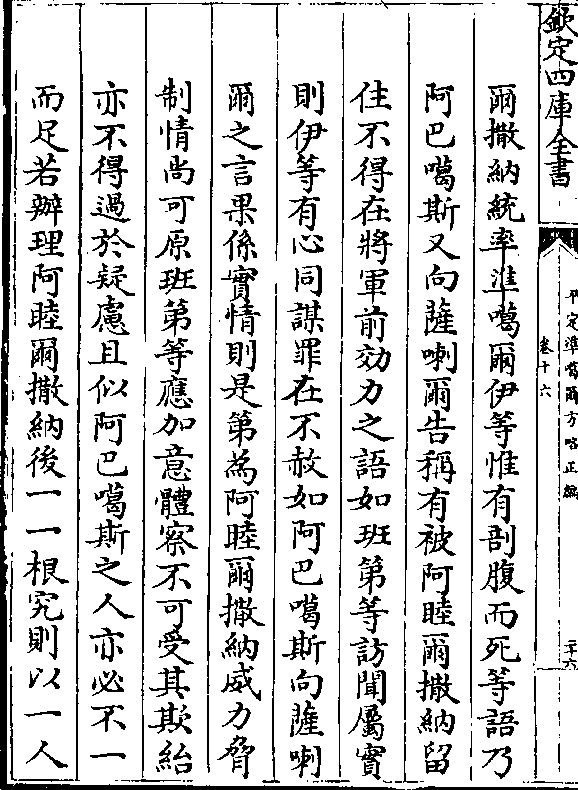 欽定四庫全書
平定準噶爾方略正編
卷十六
二十六
爾撒納統率進噶爾伊等惟有剖腹而死等語乃
阿巴噶斯又向薩喇爾告稱有被阿睦爾撒納留
住不得在將軍前効力之語如班第等訪聞屬實
則伊等有心同謀罪在不赦如阿巴噶斯向薩喇
爾之言果係實情則是第為阿睦爾撒納威力脅
制情尚可原班第等應加意體察不可受其欺紿
亦不得過於疑慮且似阿巴噶斯之人亦必不一
而足若辦理阿睦爾撒納後一一根究則以一人